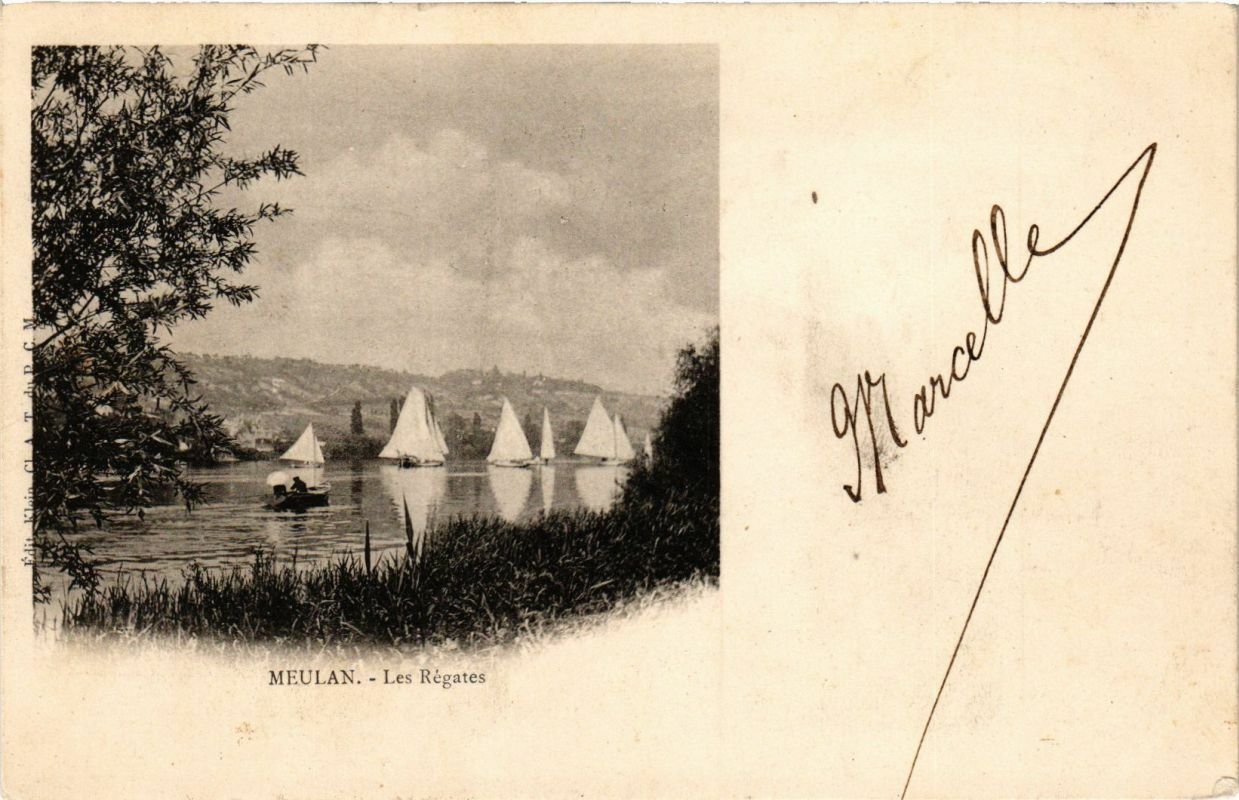 Édit. Klein. Cl. A. T. du P. C. M
MEULAN. - Les Régates
Marcelle